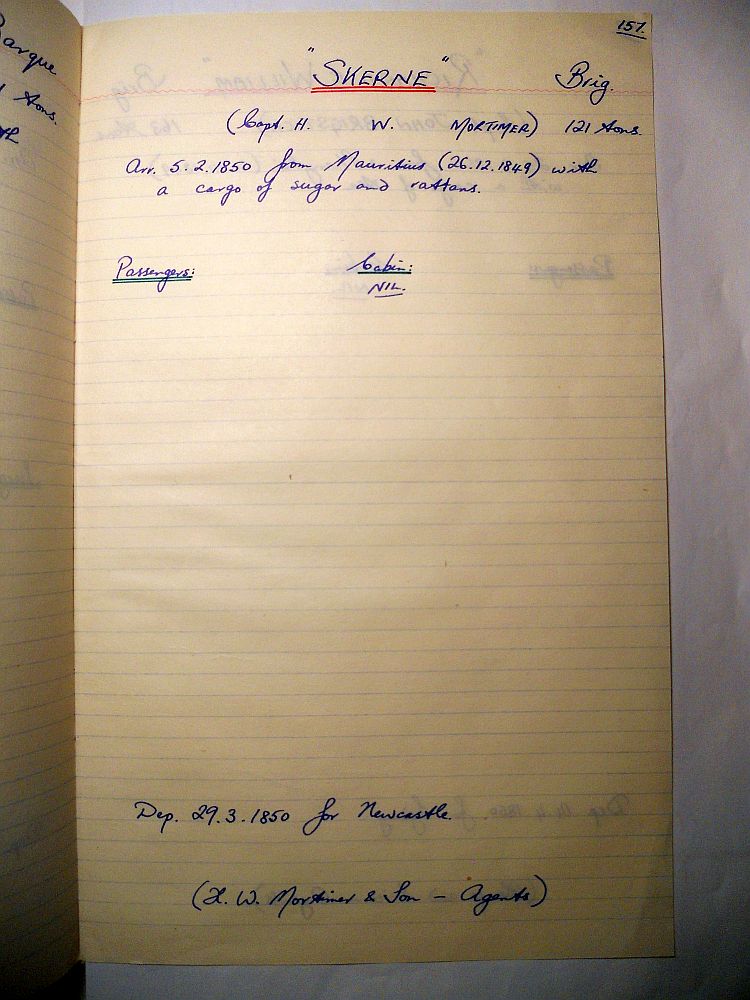 157.
"SKERNE" Brig.
(Capt. H. W. MORTIMER) 121 tons.
Arr. 5.2.1850 from Mauritius (26.12.1849) with
a cargo of sugar and rattans.
Passengers: Cabin:
NIL.
Dep. 29.3.1850 for Newcastle.
(H. W. Mortimer & Son - Agents)
Barque
tons.